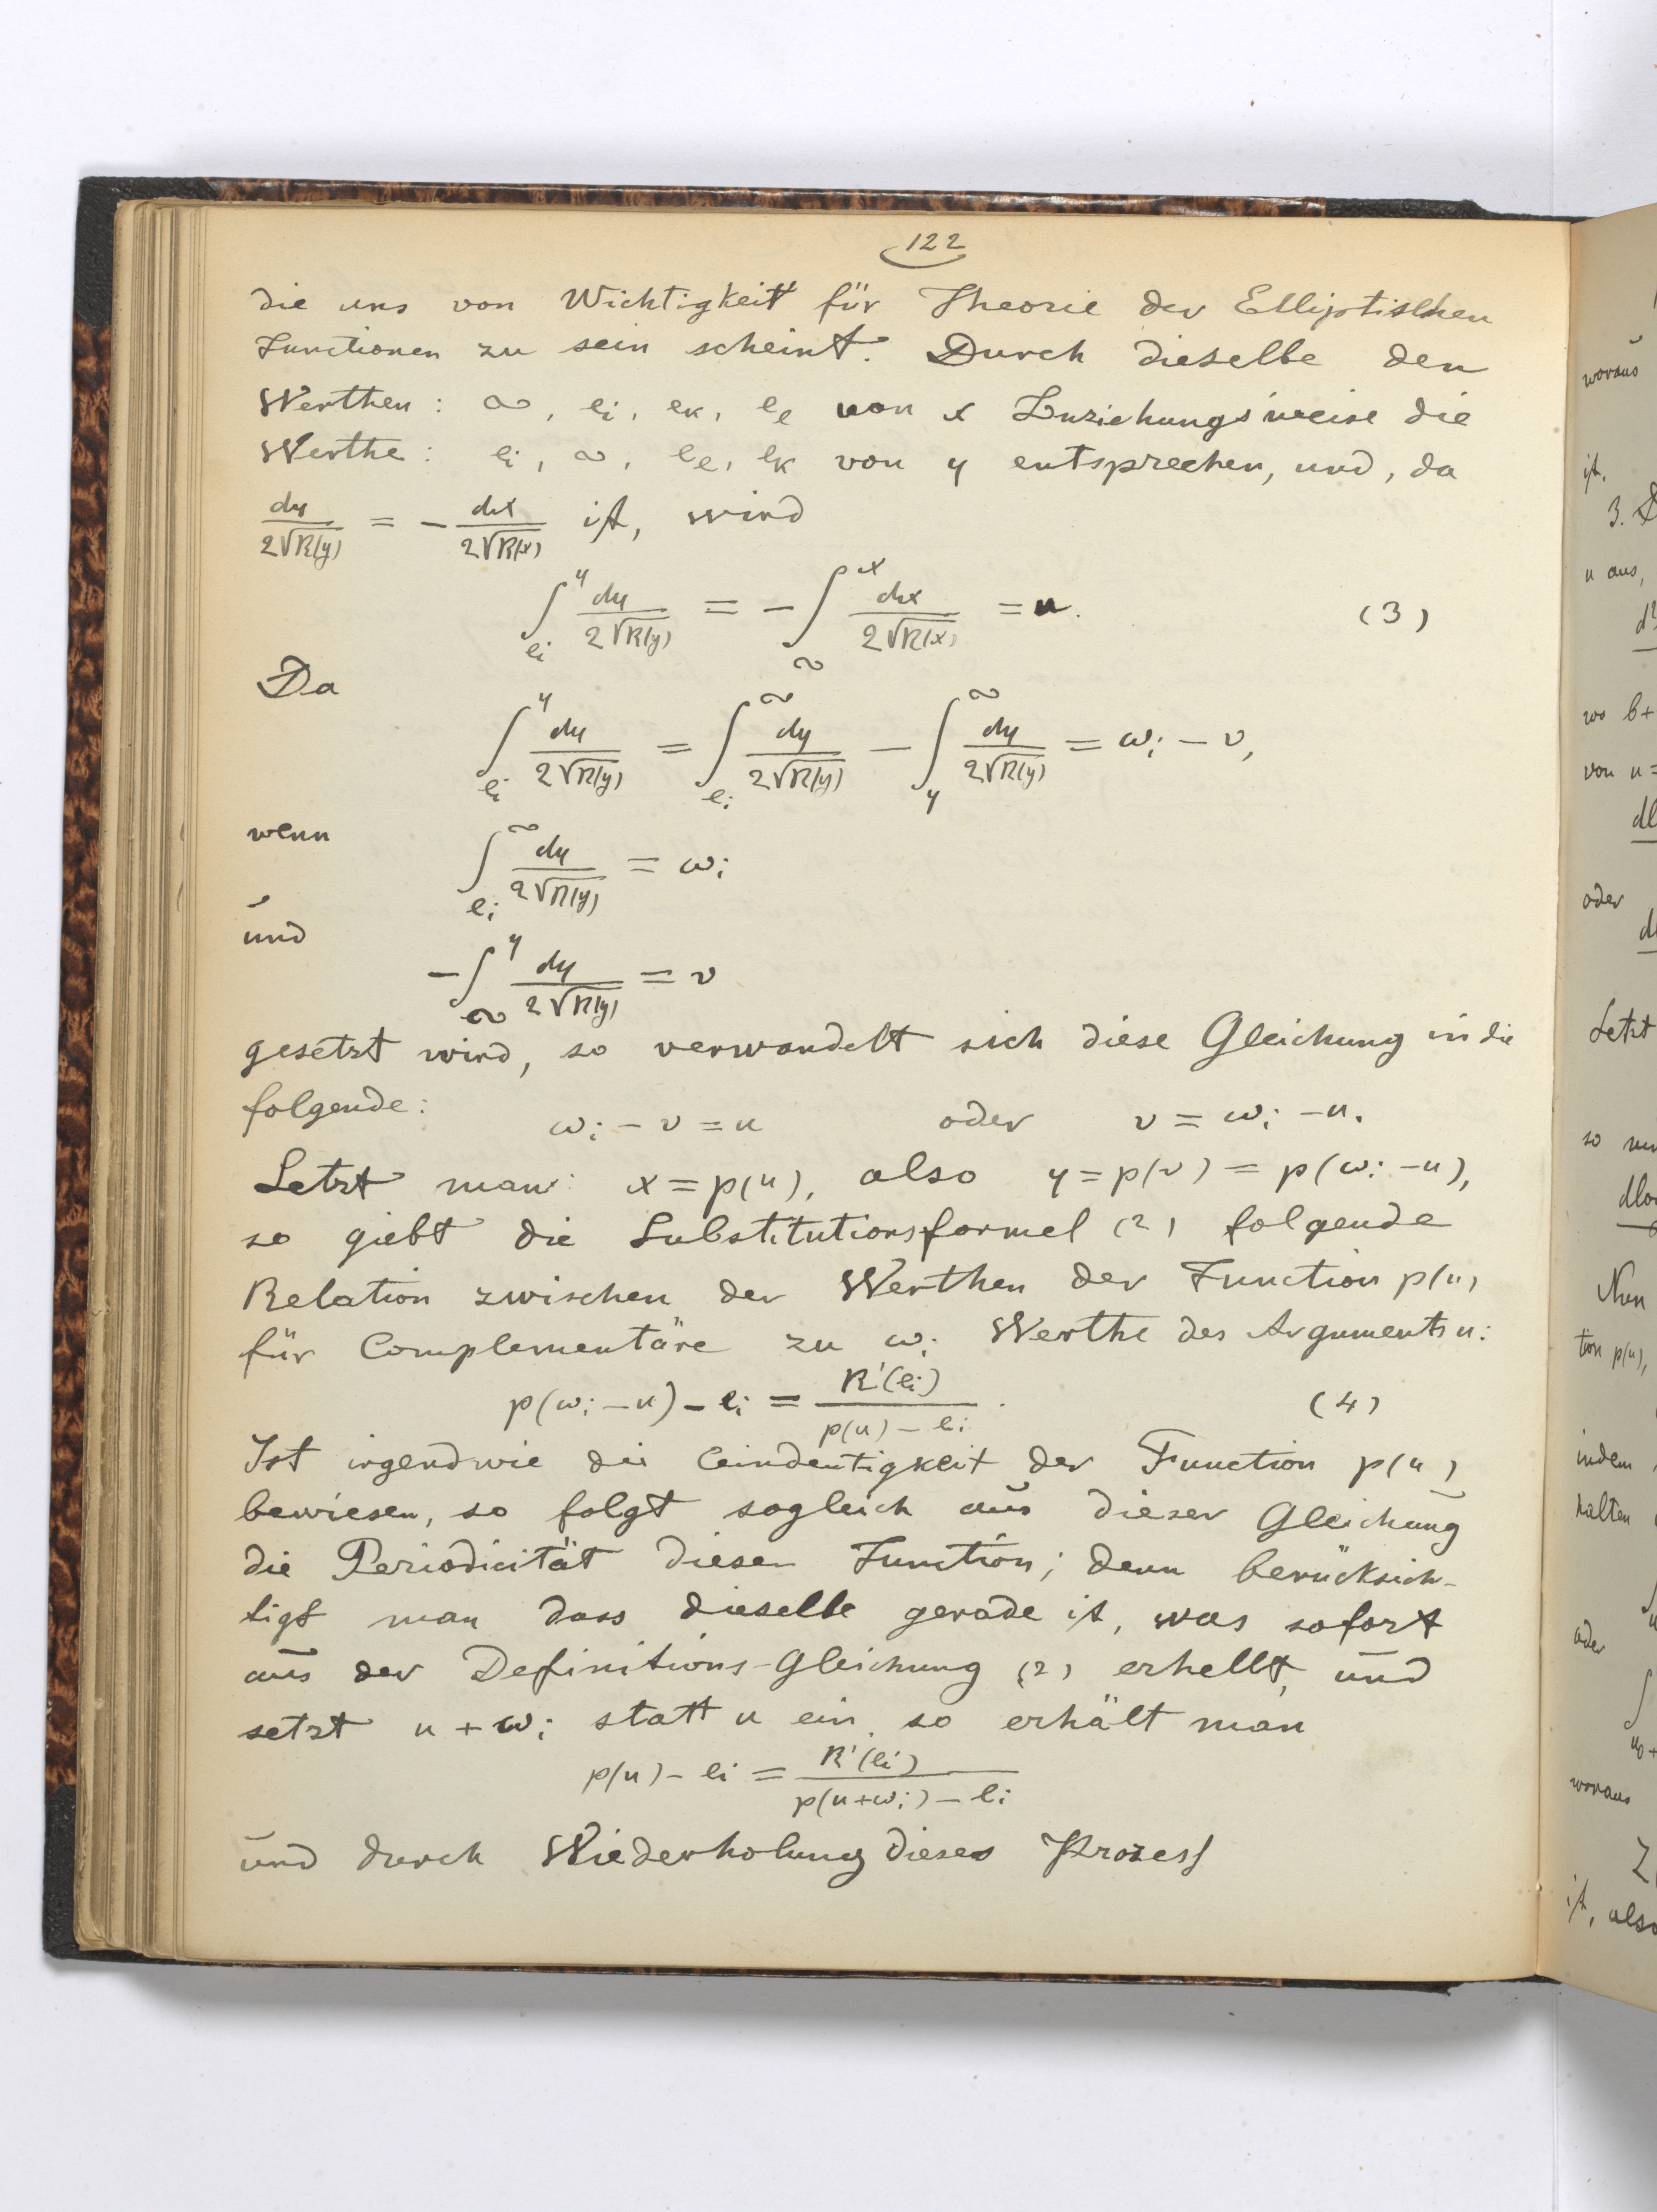 122
die uns von Wichtigkeit für Theorie der Elliptischen
Functionen zu sein scheint. Durch dieselbe den
Werthen: ∞, e_i, e_k, e_l von x beziehungsweise die
Werthe: e_i, ∞, e_l, e_k von y entsprechen, und, da
dy/2√R(y) = - dx/2√R(x) ist, wird
∫_{e_i}^{y} dy/2√R(y) = - ∫_{∞}^{x} dx/2√R(x) = u. (3)
Da
∫_{e_i}^{y} dy/2√R(y) = ∫_{e_i}^{∞} dy/2√R(y) - ∫_{y}^{∞} dy/2√R(y) = ω_i - v,
wenn
∫_{e_i}^{∞} dy/2√R(y) = ω_i
und
- ∫_{∞}^{y} dy/2√R(y) = v
gesetzt wird, so verwandelt sich diese Gleichung in die
folgende:
ω_i - v = u oder v = ω_i - u.
Setzt man: x = p(u), also y = p(v) = p(ω_i - u),
so giebt die Substitutionsformel (2) folgende
Relation zwischen der Werthen der Function p(u)
für Complementäre zu ω_i Werthe des Arguments u:
p(ω_i - u) - e_i = R'(e_i)/p(u) - e_i . (4)
Ist irgendwie die Eindeutigkeit der Function p(u)
bewiesen, so folgt sogleich aus dieser Gleichung
die Periodicität dieser Function; denn berücksich-
tigt man dass dieselbe gerade ist, was sofort
aus der Definitions-Gleichung (2) erhellt, und
setzt u + ω_i statt u ein, so erhält man
p(u) - e_i = R'(e_i)/p(u+ω_i) - e_i
und durch Wiederholung dieses Prozess
woraus
ist.
3.
u aus,
wo b+
von u=
oder
Setzt
so
Nun
tion p(u),
indem
halten
oder
woraus
ist, also